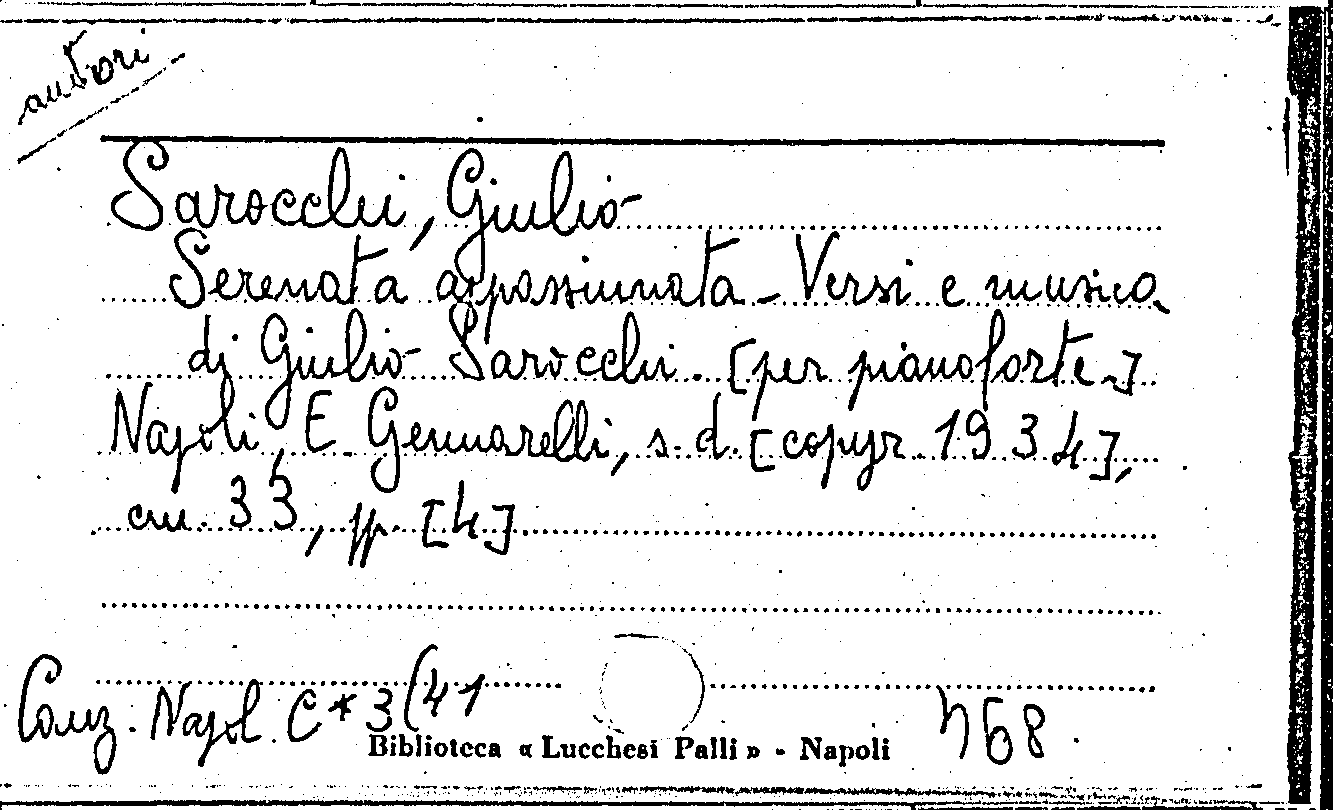 autori
Sarocchi, Giulio
Serenata appassiunata - Versi e musica
di Giulio Sarocchi. [per pianoforte.]
Napoli, E. Gennarelli, s. d. [copyr. 1934],
cm. 33, pp. [4]
Canz. Napol. C*3(41
768.
Biblioteca « Lucchesi Palli » - Napoli